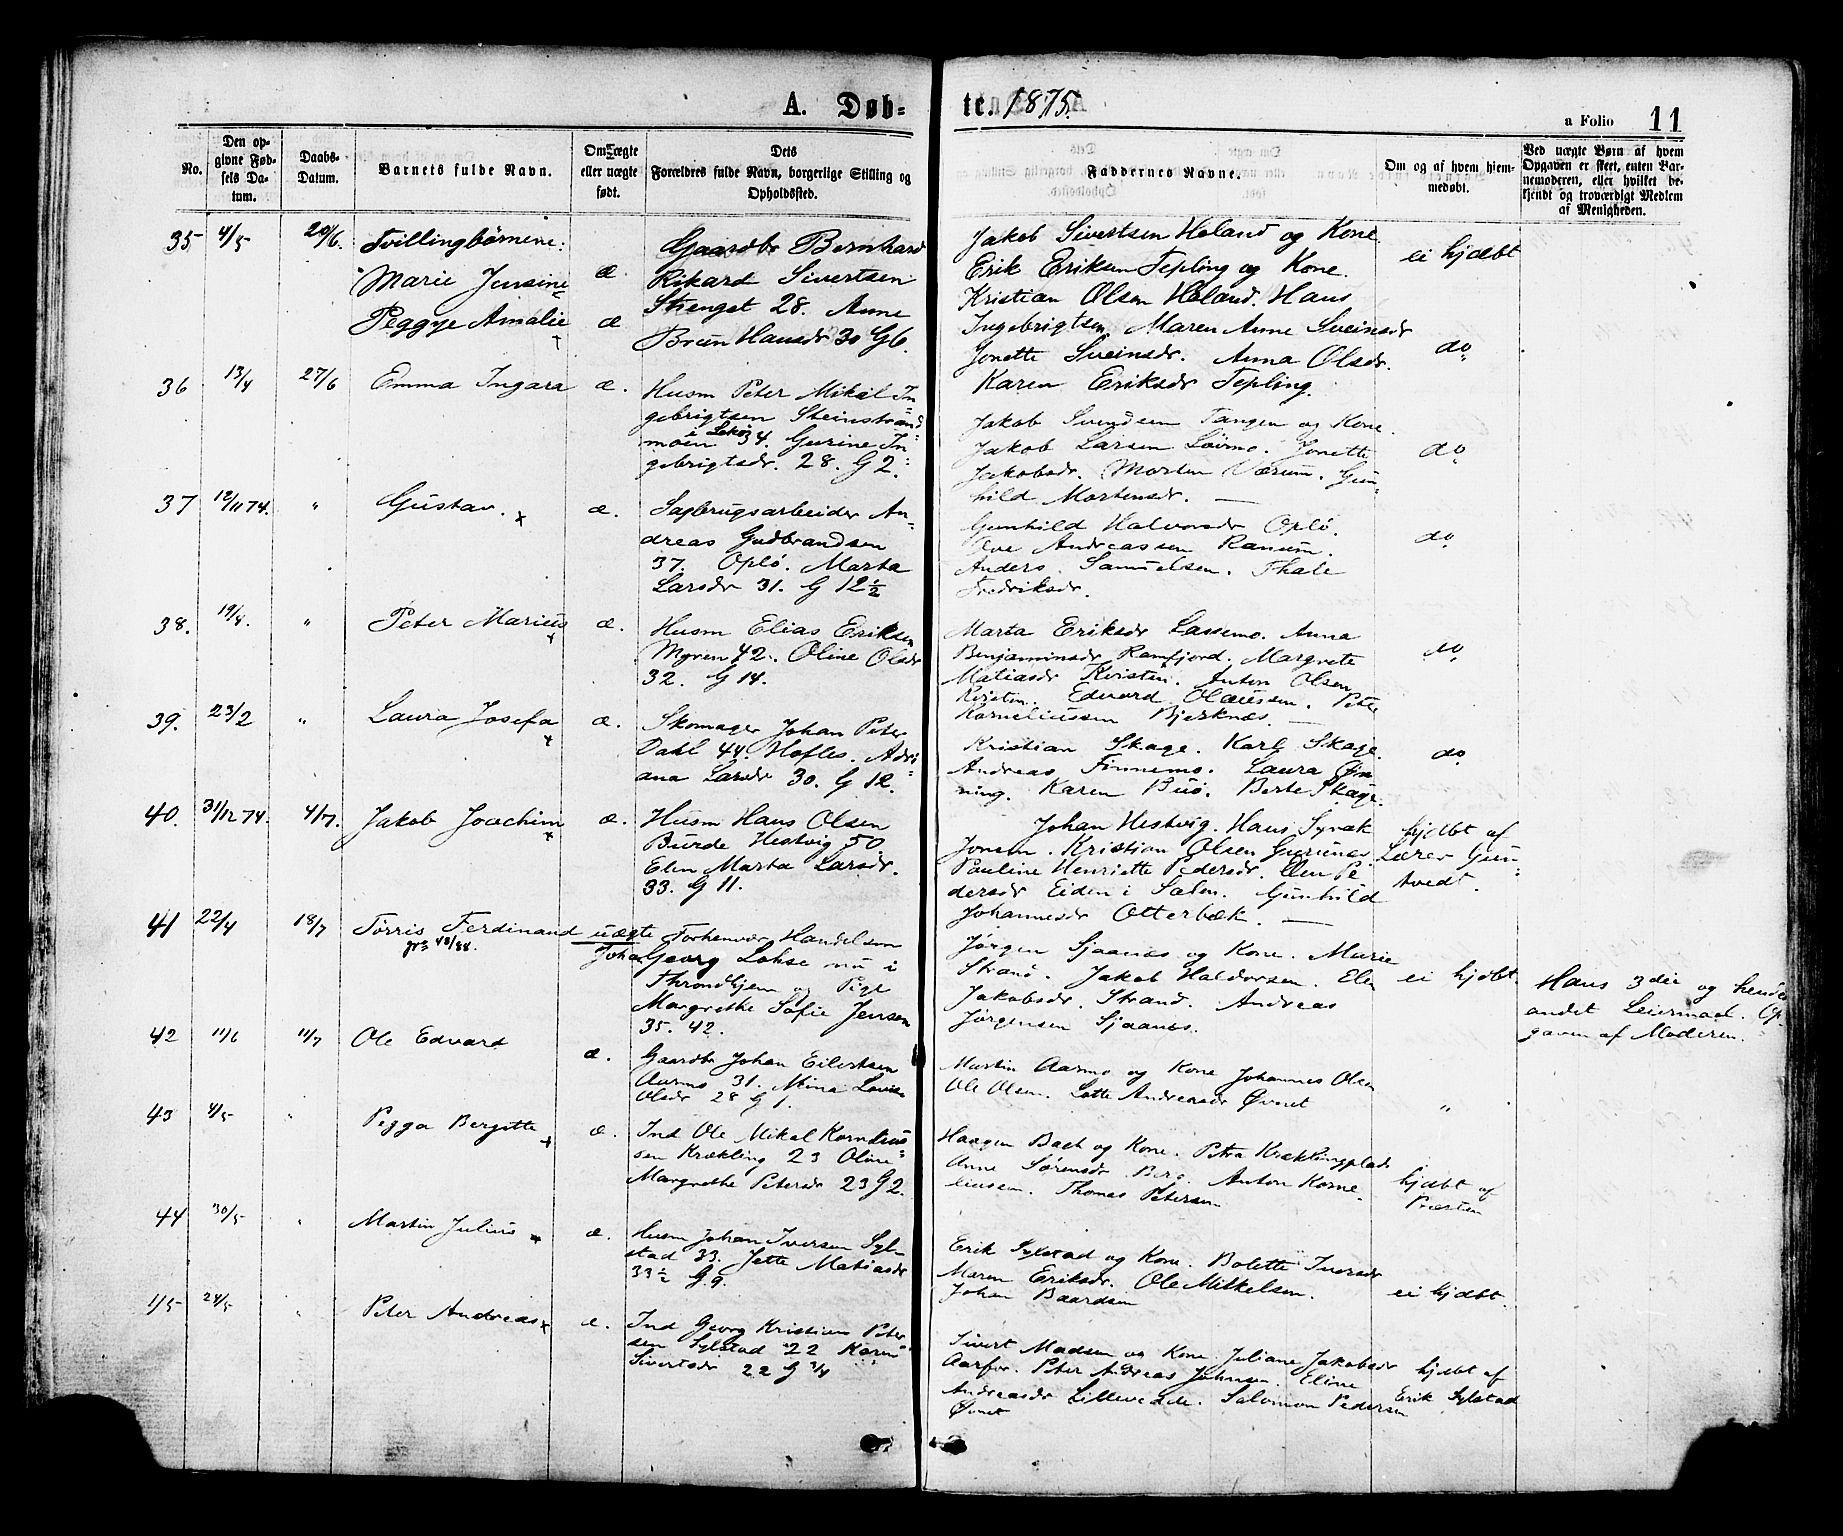 A. Døb=
te. 1875.
a Folio 11
No.
Den op-
givne Fød-
sels Da-
tum.
Daabs-
Datum.
Barnets fulde Navn.
Om ægte
eller uægte
født.
Dets
Forældres fulde Navn, borgerlige Stilling og
Opholdssted.
Faddernes Navne.
Om og af hvem hjem-
medøbt.
Ved uægte Børn af hvem
Opgaven er skeet, enten Bar-
nemoderen, eller hvilket be-
kjendt og troværdigt Medlem
af Menigheden.
35 4/5 20/6. Tvillingbørnene:
Marie Jensine æ
Peggye Amalie æ
Gaardbr Bernhard
Rikard Sivertsen
28. Anne
Brun Hansdr 30 G6.
Jakob Sivertsen Høland og Kone.
Erik Eriksen Tepling og Kone.
Kristian Olsen Høland. Hans
Ingebrigtsen, Maren Anne Sveinsdr
Jonette Sveinsdr. Anna Olsdr.
Karen Eriksdr Tepling.
ei hjdøbt
do
36 13/4 27/6 Emma Ingara æ.
Husm Peter Mikal In
gebrigtsen Steinstrand
moen i Lekø 34. Gurine In
gebrigtsdr. 28. G 2.
Jakob Svendsen Tangen og Kone.
Jakob Larsen Løvmo. Jonette
Jakobsdr. Morten Værum. Gun-
hild Mortensdr. —
do
37 12/11 74. " Gustav. x æ.
Sagbrugsarbeider An
dreas Gudbrandsen
37. Oplø. Marta
Larsdr 31. G 12½
Gunhild Halvorsdr Oplø.
Ove Andreassen Ranum.
Anders Samuelsen. Thale
Fredriksdr.
do
38. 19/4. " Peter Marius x æ.
Husm Elias Eriksen
Myren 42. Oline Olsdr
32. G 14.
Marta Eriksdr Lassemo. Anna
Benjaminsdr Ramfjord. Margrete
Matiasdr Kvisten. Anton Olsen
Kvisten. Edvard Olaussen. Peter
Korneliussen Bjerknæs. —
do
39. 23/2 " Laura Josefa x æ.
Skomager Johan Peter
Dahl 44. Hofles. Adri
ana Larsdr 30. G 12.
Kristian Skage. Karl Skage.
Andreas Finnemo. Laura Øn
ning. Karen Buø. Berte Skage.
do
40. 31/12 74. 4/7. Jakob Joachim x æ.
Husm Hans Olsen
Burde Hestvig 50
Elen Marta Larsdr.
33. G 11.
Johan Hestvig. Hans Syrak
Jonsen. Kristian Olsen
Pauline Henriette Pedersdr. Elen Pe
dersdr Eiden i Salen. Gunhild
Johannesdr Otterbæk. —
hjdøbt af
Lærer Gun-
tvedt.
41 22/4 18/7 Torris Ferdinand uægte
Forhenvær Handelsm
Johan Georg Lohse nu i
Throndhjem og Pige
Margrethe Sofie Jensen
35. 42.
Jørgen Sjaanæs og Kone. Marie
Strand. Jakob Haldorsen. Elen
Jakobsdr. Strand. Andreas
Jørgensen Sjaanes.
ei hjdøbt.
Hans 3die og hendes
andet Leiermaal. Op-
gaven af Moderen.
42 11/6 11/7 Ole Edvard æ.
Gaardbr Johan Eilertsen
Aarmo 31. Mina Lovise
Olsdr 28 G 1.
Martin Aarmo og Kone Johannes Olsen
Ole Olsen. Lotte Andreasdr Øvnet
"
43 4/5 " Pegga Bergitte x æ.
Ind Ole Mikal Kornelius
sen Krækling 23 Oline
Margrethe Petersdr 23 G2.
Haagen Bach og Kone. Petra Kræklingplads
Anne Sørensdr Berg. Anton Korne-
liussen. Thomas Petersen
hjdøbt af
Præsten
44 30/5 " Martin Julius x æ.
Husm Johan Iversen Syl-
stad 33. Jette Matiasdr
33½ G9.
Erik Sylstad og Kone. Bolette Iversdr
Maren Eriksdr. Ole Mikkelsen.
Johan Baardsen
ei hjdøbt.
45 24/5 " Peter Andreas x æ.
Ind Georg Kristian Peter
sen Sylstad 22 Karen
Sivertsdr 22 G 3/4
Sivert Madsen og Kone. Juliane Jakobsdr
Aarfor. Peter Andreas Johnsen. Eline
Andreasdr Salomon Pedersen
Øvnet
hjdøbt af
Erik Sylstad